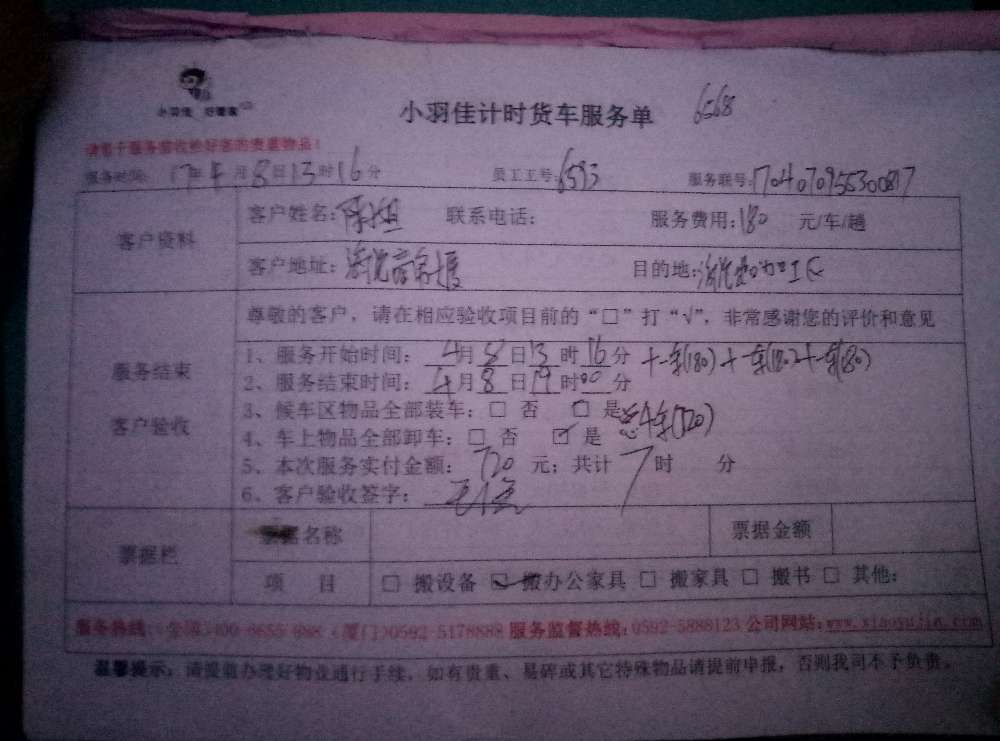 小羽佳 好管家
小羽佳计时货车服务单 6568
请看于服务前收拾好您的贵重物品!
服务时间: 17年4月8日13时16分 员工工号: 6593 服务联号: 1704070955300817
客户资料
客户姓名: 陈 联系电话: 服务费用: 180 元/车/趟
客户地址: 目的地:
尊敬的客户，请在相应验收项目前的“□”打“√”，非常感谢您的评价和意见
服务结束
客户验收
1、服务开始时间: 4月8日13时16分 +一车(180)+一车(180)+一车(180)
2、服务结束时间: 4月8日19时00分
3、候车区物品全部装车: □ 否 □ 是 总4车(720)
4、车上物品全部卸车: □ 否 ☑ 是
5、本次服务实付金额: 720 元; 共计 7 时 分
6、客户验收签字:
票据栏
票据名称 票据金额
项 目 □ 搬设备 ☑ 搬办公家具 □ 搬家具 □ 搬书 □ 其他:
服务热线: 全国 400-8655 厦门0592-5178888 服务监督热线: 0592-5888123 公司网站: www.xiaoyujia.com
温馨提示: 请提前办理好物业通行手续，如有贵重、易碎或其它特殊物品请提前申报，否则我司不予负责。